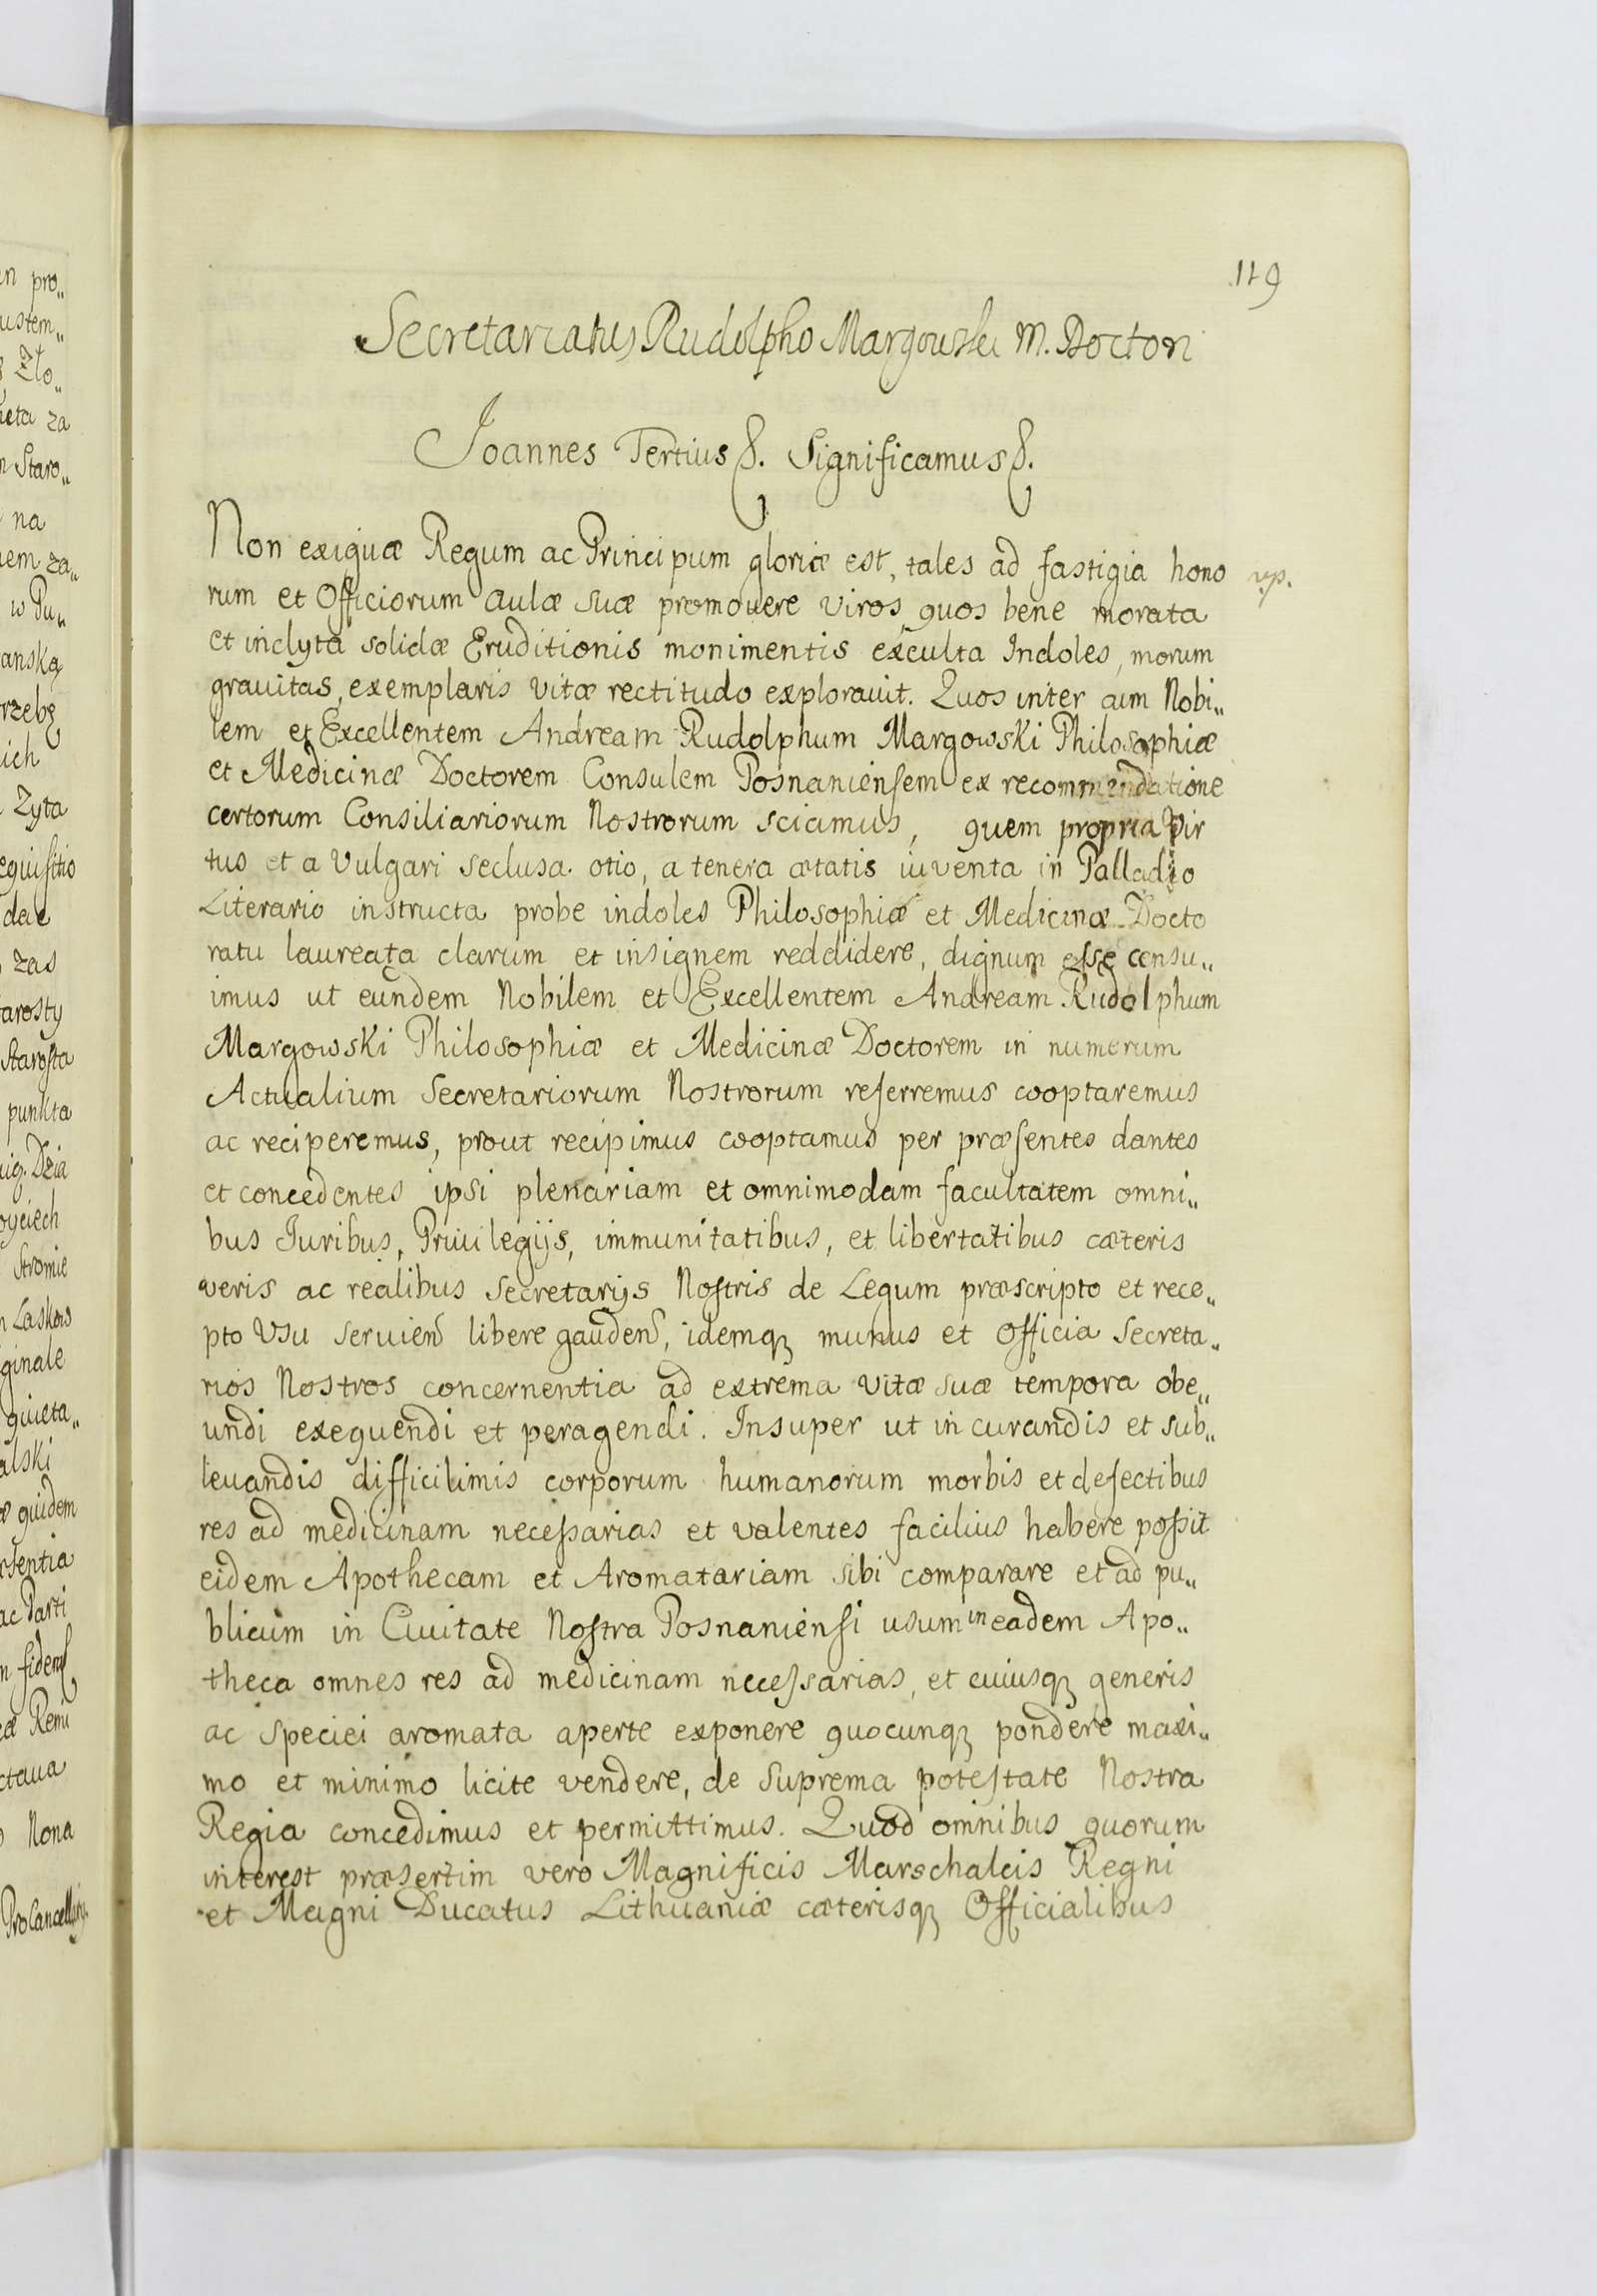 en pro„
ustem„
Zło„
ieta za
n Staro„
na
iem za„
w Pu„
anską
rzebę
ich
Zyta
equisitio
dae
zas
tarosty
Starosta
punkta
uig. Dzia
oyciech
Stromie
n Laskow
iginale
quieta„
alski
æ quidem
rsentia
ac Parti
n fidem
ctaua
Nona
ProCancellarij.
119
Secretariatus Rudolpho Margowski M. Doctori
Joannes Tertius &. Significamus &.
Non exiguæ Regum ac Principum gloriæ est, tales ad fastigia hono
rum et Officiorum aulæ suæ promouere viros, quos bene morata
et inclyta solidæ Eruditionis monimentis exculta Indoles, morum
grauitas, exemplaris vitæ rectitudo explorauit. Quos inter cum Nobi„
lem et Excellentem Andream Rudolphum Margowski Philosophiæ
et Medicinæ Doctorem Consulem Posnaniensem ex recommendatione
certorum Consiliariorum Nostrorum sciamus, quem propria Vir
tus et a Vulgari seclusa otio, a tenera ætatis iuventa in Palladio
Literario instructa probe indoles Philosophiæ et Medicinæ Docto
ratu laureata clarum et insignem reddidere, dignum esse censu„
imus ut eundem Nobilem et Excellentem Andream Rudolphum
Margowski Philosophiæ et Medicinæ Doctorem in numerum
Actualium Secretariorum Nostrorum referremus cooptaremus
ac reciperemus, prout recipimus cooptamus per præsentes dantes
et concedentes ipsi plenariam et omnimodam facultatem omni„
bus Iuribus, Priuilegijs, immunitatibus, et libertatibus cæteris
veris ac realibus Secretarijs Nostris de Legum præscripto et rece„
pto Usu seruien libere gauden, idemq munus et Officia Secreta„
rios Nostros concernentia ad extrema vitæ suæ tempora obe„
undi exequendi et peragendi. Insuper ut in curandis et sub„
leuandis difficilimis corporum humanorum morbis et defectibus
res ad medicinam necessarias et valentes facilius habere possit
eidem Apothecam et Aromatariam sibi comparare et ad pu„
blicum in Ciuitate Nostra Posnaniensi usum in eadem Apo„
theca omnes res ad medicinam necessarias, et cuiusq generis
ac speciei aromata aperte exponere quocunq pondere maxi„
mo et minimo licite vendere, de Suprema potestate Nostra
Regia concedimus et permittimus. Quod omnibus quorum
interest præsertim vero Magnificis Marschalcis Regni
et Magni Ducatus Lithuaniæ cæterisq Officialibus